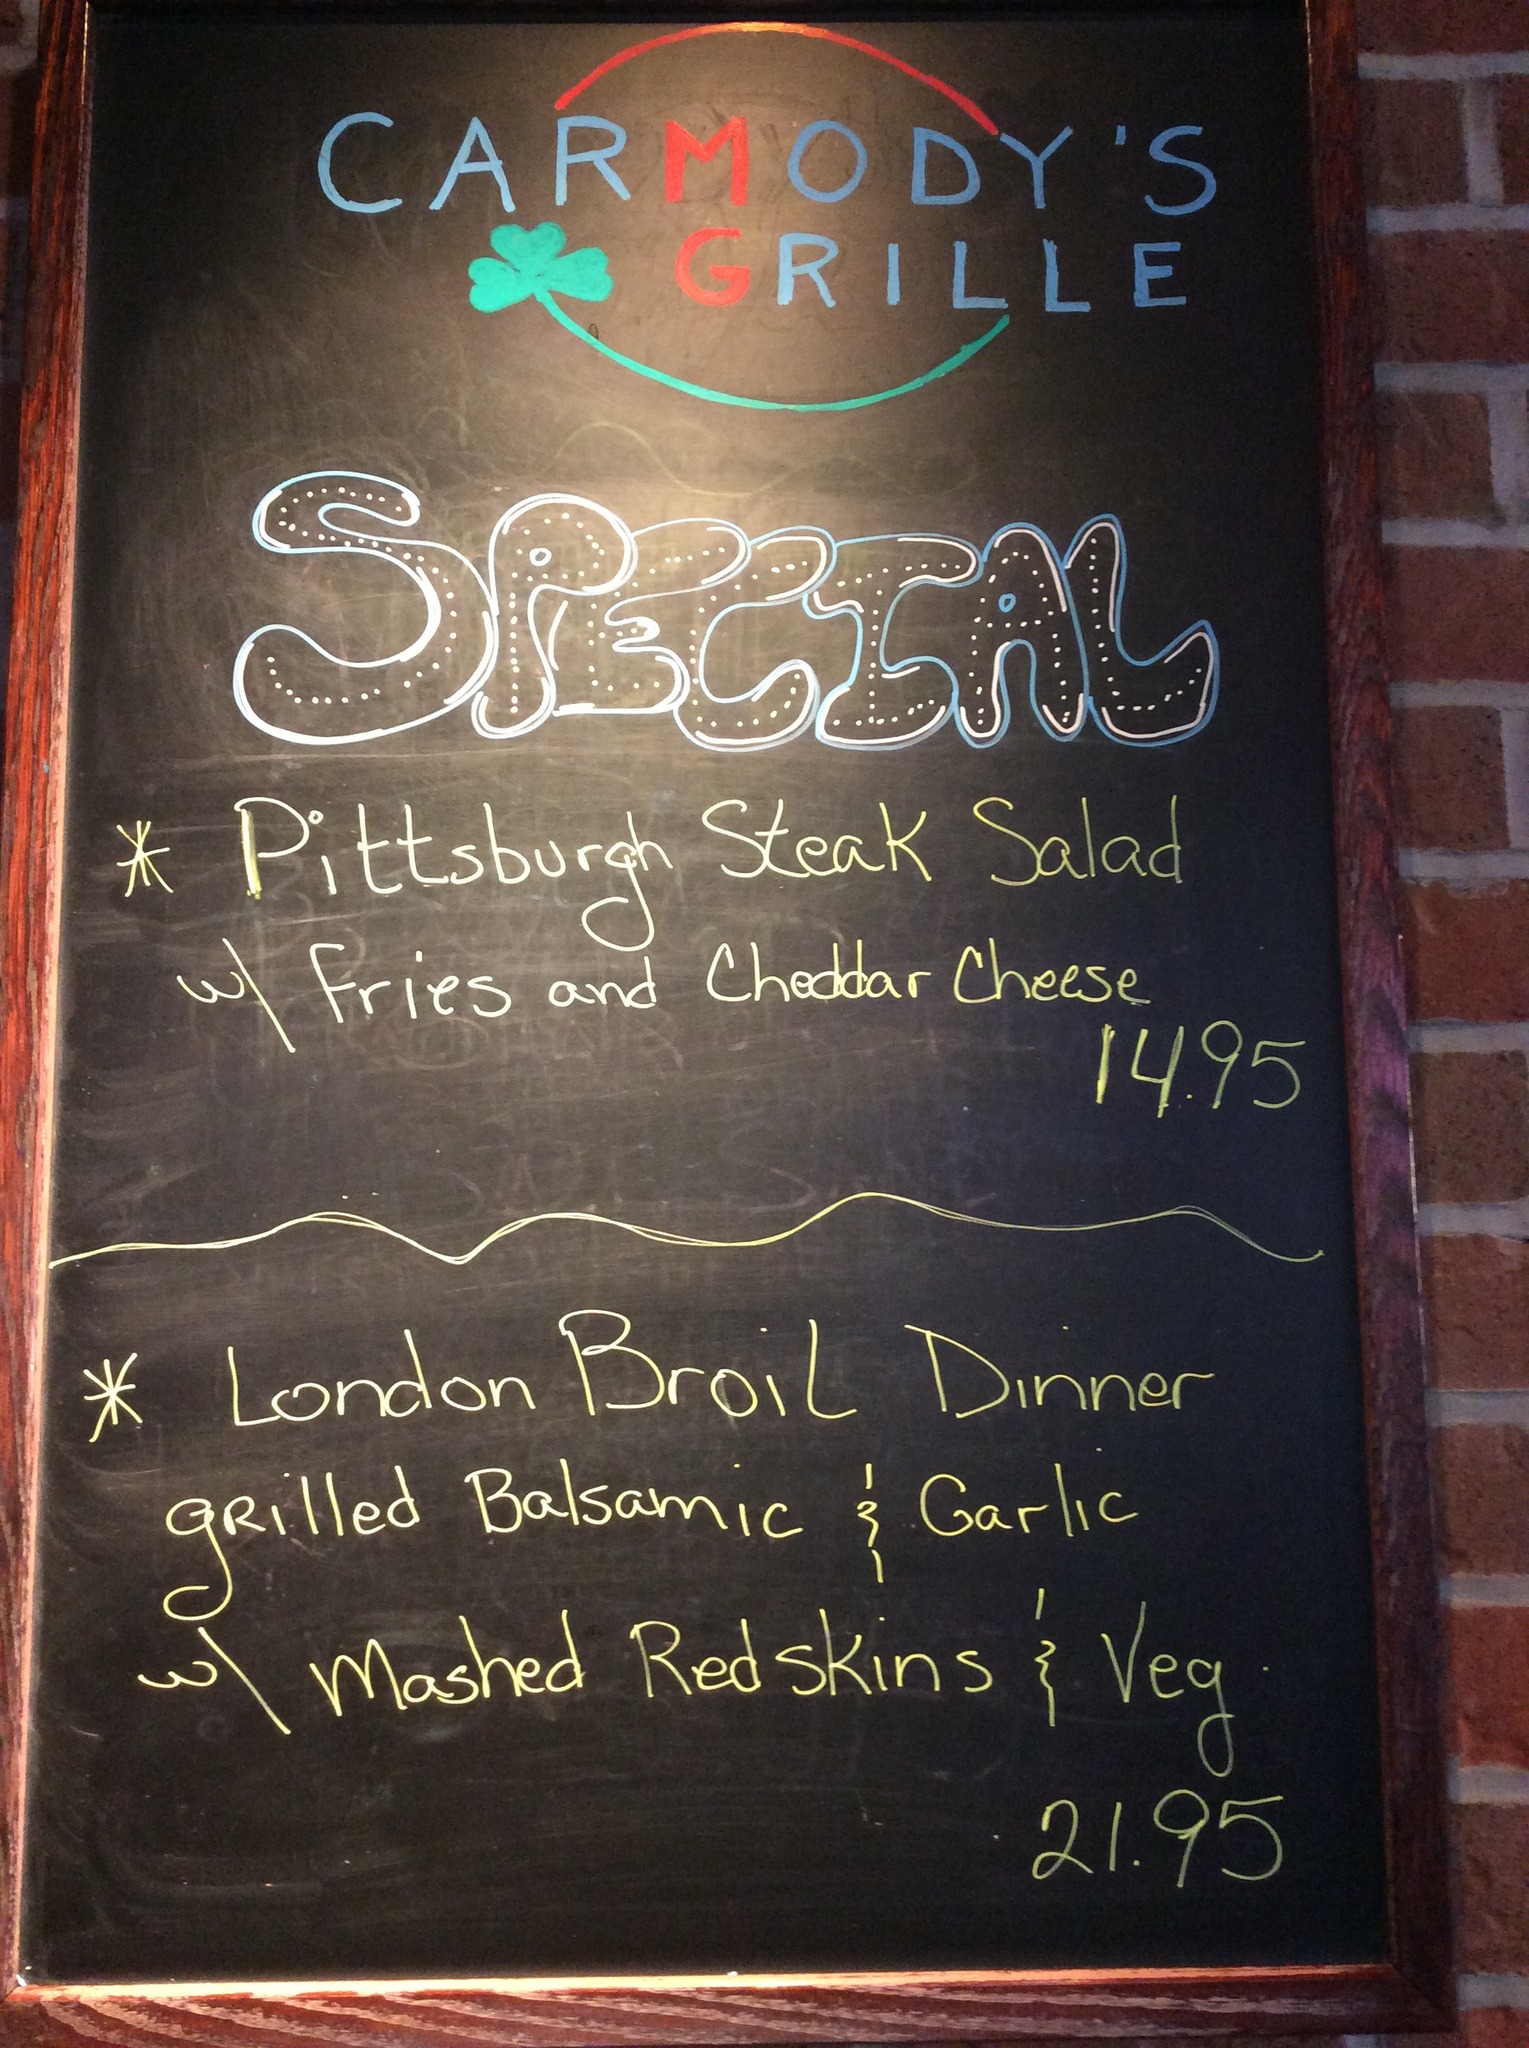 CARMODY'S
GRILLE
SPECIAL
* Pittsburgh Steak Salad
w/ Fries and Cheddar Cheese
14.95
* London Broil Dinner
grilled Balsamic & Garlic
w/ Mashed Redskins & Veg.
21.95